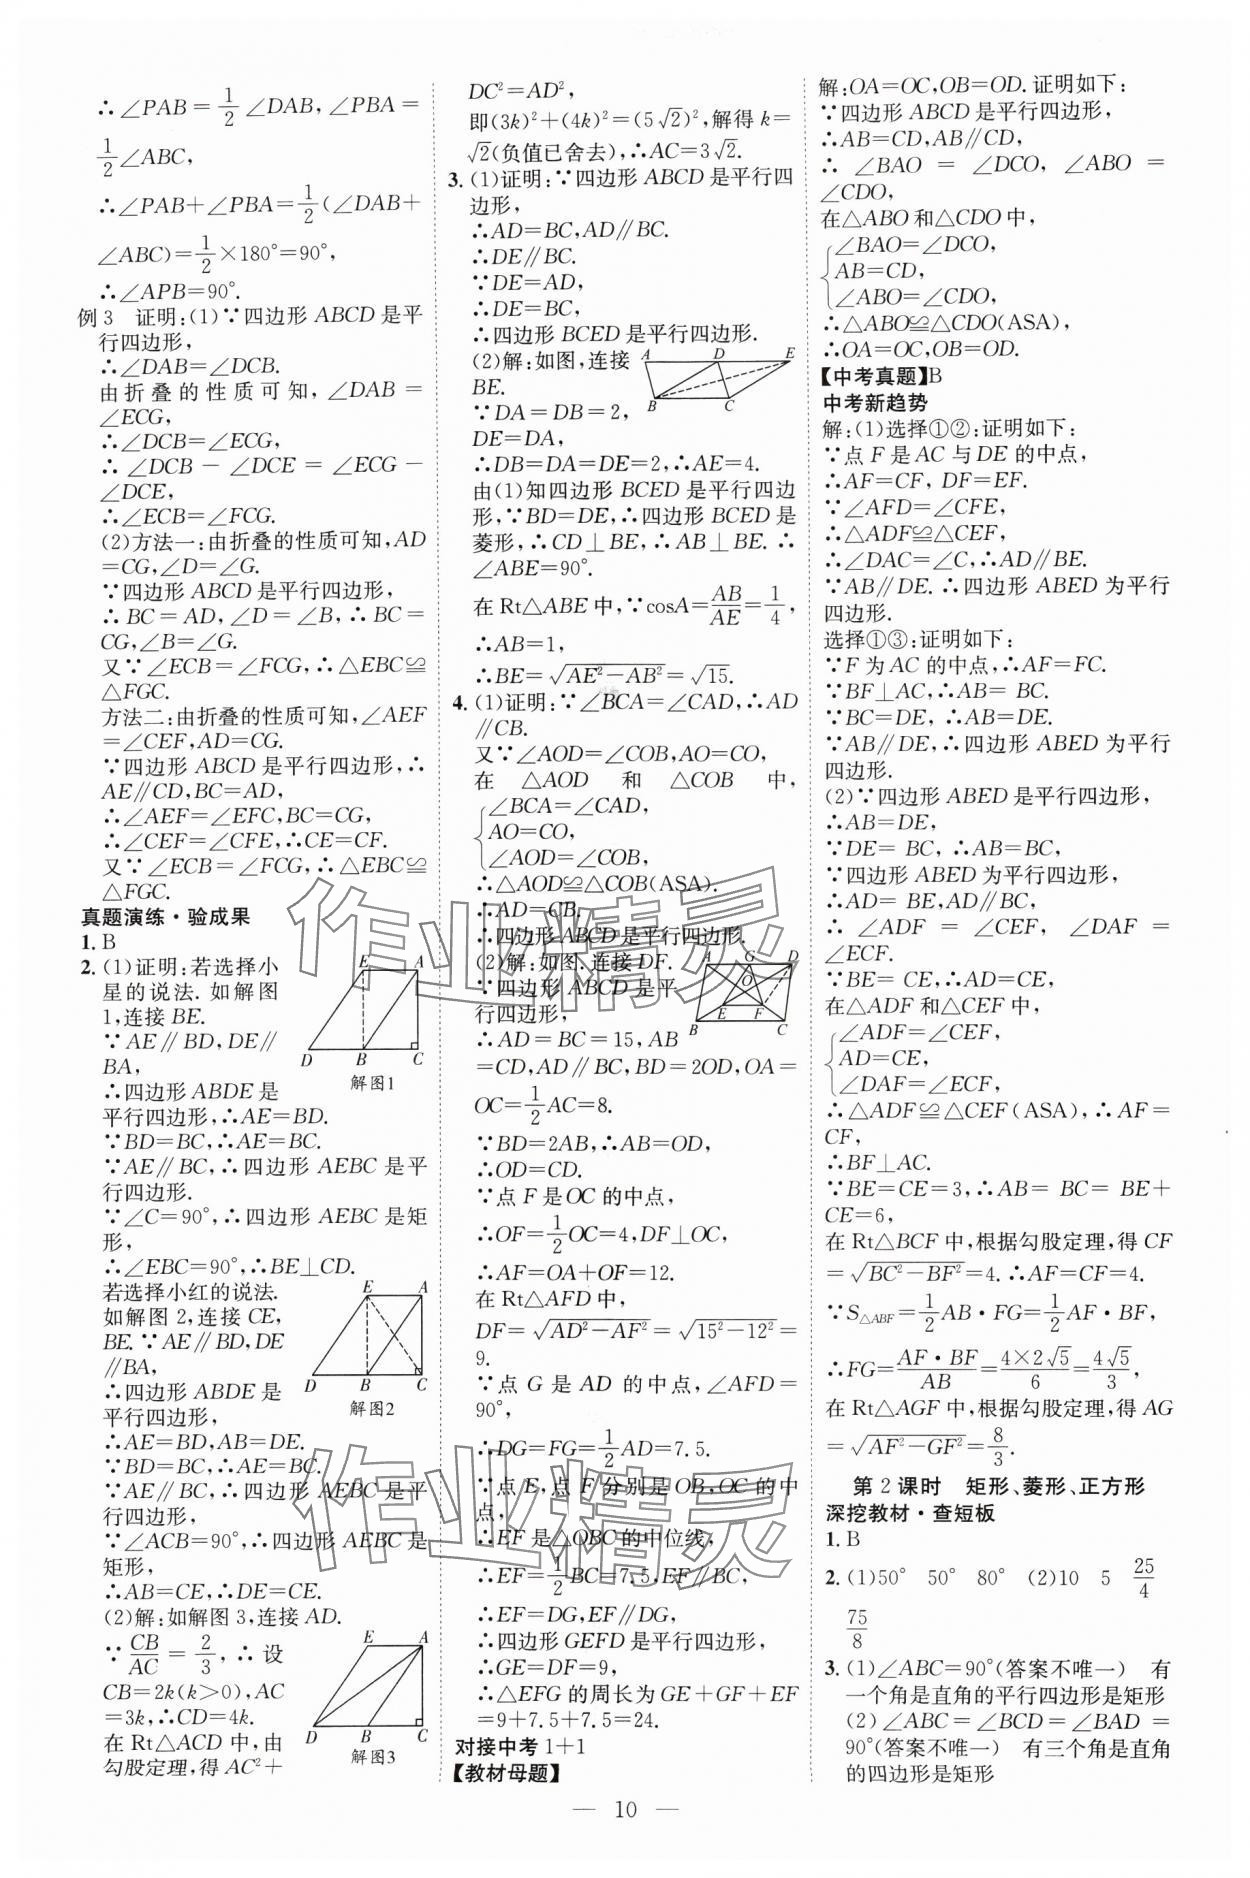 ∴∠PAB=1/2∠DAB,∠PBA=
1/2∠ABC,
∴∠PAB+∠PBA=1/2(∠DAB+
∠ABC)=1/2×180°=90°,
∴∠APB=90°.
例3 证明:(1)∵四边形ABCD是平
行四边形,
∴∠DAB=∠DCB.
由折叠的性质可知,∠DAB=
∠ECG,
∴∠DCB=∠ECG,
∴∠DCB-∠DCE=∠ECG-
∠DCE,
∴∠ECB=∠FCG.
(2)方法一:由折叠的性质可知,AD
=CG,∠D=∠G.
∵四边形ABCD是平行四边形,
∴BC=AD,∠D=∠B,∴BC=
CG,∠B=∠G.
又∵∠ECB=∠FCG,∴△EBC≌
△FGC.
方法二:由折叠的性质可知,∠AEF
=∠CEF,AD=CG.
∵四边形ABCD是平行四边形,∴
AE∥CD,BC=AD,
∴∠AEF=∠EFC,BC=CG,
∴∠CEF=∠CFE,∴CE=CF.
又∵∠ECB=∠FCG,∴△EBC≌
△FGC.
真题演练·验成果
1.B
2.(1)证明:若选择小
星的说法.如解图
1,连接BE.
∵AE∥BD,DE∥
BA,
∴四边形ABDE是
平行四边形,∴AE=BD.
E A D B C
解图1
∵BD=BC,∴AE=BC.
∵AE∥BC,∴四边形AEBC是平
行四边形.
∵∠C=90°,∴四边形AEBC是矩
形,
∴∠EBC=90°,∴BE⊥CD.
若选择小红的说法.
如解图2,连接CE,
BE.∵AE∥BD,DE
∥BA,
∴四边形ABDE是
平行四边形,
E A D B C
解图2
∴AE=BD,AB=DE.
∵BD=BC,∴AE=BC.
∵AE∥BC,∴四边形AEBC是平
行四边形.
∵∠ACB=90°,∴四边形AEBC是
矩形,
∴AB=CE,∴DE=CE.
(2)解:如解图3,连接AD.
∵CB/AC=2/3,∴设
CB=2k(k>0),AC
=3k,∴CD=4k.
在Rt△ACD中,由
勾股定理,得AC²+
E A D B C
解图3
DC²=AD²,
即(3k)²+(4k)²=(5√2)²,解得k=
√2(负值已舍去),∴AC=3√2.
3.(1)证明:∵四边形ABCD是平行四
边形,
∴AD=BC,AD∥BC.
∴DE∥BC.
∵DE=AD,
∴DE=BC,
∴四边形BCED是平行四边形.
(2)解:如图,连接
BE.
∵DA=DB=2,
DE=DA,
A D E B C
∴DB=DA=DE=2,∴AE=4.
由(1)知四边形BCED是平行四边
形,∵BD=DE,∴四边形BCED是
菱形,∴CD⊥BE,∴AB⊥BE.∴
∠ABE=90°.
在Rt△ABE中,∵cosA=AB/AE=1/4,
∴AB=1,
∴BE=√(AE²-AB²)=√15.
4.(1)证明:∵∠BCA=∠CAD,∴AD
∥CB.
又∵∠AOD=∠COB,AO=CO,
在△AOD和△COB中,
∠BCA=∠CAD,
AO=CO,
∠AOD=∠COB,
∴△AOD≌△COB(ASA).
∴AD=CB.
∴四边形ABCD是平行四边形.
(2)解:如图.连接DF.
∵四边形ABCD是平
行四边形,
A G D O E F B C
∴AD=BC=15,AB
=CD,AD∥BC,BD=2OD,OA=
OC=1/2AC=8.
∵BD=2AB,∴AB=OD,
∴OD=CD.
∵点F是OC的中点,
∴OF=1/2OC=4,DF⊥OC,
∴AF=OA+OF=12.
在Rt△AFD中,
DF=√(AD²-AF²)=√(15²-12²)=
9.
∵点G是AD的中点,∠AFD=
90°,
∴DG=FG=1/2AD=7.5.
∵点E,点F分别是OB,OC的中
点,
∴EF是△OBC的中位线,
∴EF=1/2BC=7.5,EF∥BC,
∴EF=DG,EF∥DG,
∴四边形GEFD是平行四边形,
∴GE=DF=9,
∴△EFG的周长为GE+GF+EF
=9+7.5+7.5=24.
对接中考1+1
【教材母题】
解:OA=OC,OB=OD.证明如下:
∵四边形ABCD是平行四边形,
∴AB=CD,AB∥CD,
∴∠BAO=∠DCO,∠ABO=
∠CDO,
在△ABO和△CDO中,
∠BAO=∠DCO,
AB=CD,
∠ABO=∠CDO,
∴△ABO≌△CDO(ASA),
∴OA=OC,OB=OD.
【中考真题】B
中考新趋势
解:(1)选择①②:证明如下:
∵点F是AC与DE的中点,
∴AF=CF,DF=EF.
∵∠AFD=∠CFE,
∴△ADF≌△CEF,
∴∠DAC=∠C,∴AD∥BE.
∵AB∥DE.∴四边形ABED为平行
四边形.
选择①③:证明如下:
∵F为AC的中点,∴AF=FC.
∵BF⊥AC,∴AB=BC.
∵BC=DE,∴AB=DE.
∵AB∥DE,∴四边形ABED为平行
四边形.
(2)∵四边形ABED是平行四边形,
∴AB=DE,
∵DE=BC,∴AB=BC,
∵四边形ABED为平行四边形,
∴AD=BE,AD∥BC,
∴∠ADF=∠CEF,∠DAF=
∠ECF.
∵BE=CE,∴AD=CE,
在△ADF和△CEF中,
∠ADF=∠CEF,
AD=CE,
∠DAF=∠ECF,
∴△ADF≌△CEF(ASA),∴AF=
CF,
∴BF⊥AC.
∵BE=CE=3,∴AB=BC=BE+
CE=6,
在Rt△BCF中,根据勾股定理,得CF
=√(BC²-BF²)=4.∴AF=CF=4.
∵S△ABF=1/2AB·FG=1/2AF·BF,
∴FG=AF·BF/AB=4×2√5/6=4√5/3,
在Rt△AGF中,根据勾股定理,得AG
=√(AF²-GF²)=8/3.
第2课时 矩形、菱形、正方形
深挖教材·查短板
1.B
2.(1)50° 50° 80° (2)10 5 25/4
75/8
3.(1)∠ABC=90°(答案不唯一) 有
一个角是直角的平行四边形是矩形
(2)∠ABC=∠BCD=∠BAD=
90°(答案不唯一) 有三个角是直角
的四边形是矩形
— 10 —
作业精灵
作业精灵